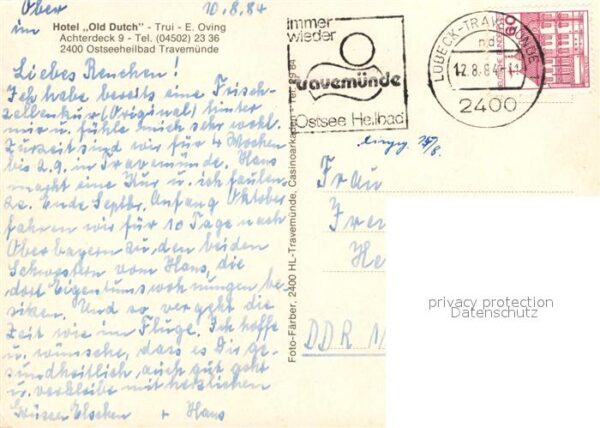 Ober 10.8.84
im Hotel „Old Dutch" - Trui - E. Oving
Achterdeck 9 - Tel. (04502) 23 36
2400 Ostseeheilbad Travemünde
Liebes Renchen!
Ich habe bereits eine Frisch-
zellenkur (Original) hinter
mir u. fühle mich sehr wohl.
Zurzeit sind wir für 4 Wochen
bis 2.9. in Travemünde. Hans
macht eine Kur u. ich faulen-
ze. Ende Septbr. Anfang Oktober
fahren wir für 10 Tage nach
Oberbayern zu den beiden
Schwestern vom Hans, die
dort Eigentumswohnungen be-
sitzen. Und so vergeht die
Zeit wie im Fluge. Ich hoffe
u. wünsche, dass es Dir ge-
sundheitlich auch gut geht
u. verbleibe mit herzlichen
Grüssen Elschen + Hans
Foto-Färber, 2400 HL-Travemünde, Casinoarkaden
immer
wieder
travemünde
Ostsee Heilbad
LÜBECK-TRAVEMÜNDE 1
12.8.84
2400
60
Frau
DDR
privacy protection
Datenschutz